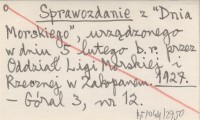 Sprawozdanie z "Dnia
Morskiego", urządzonego
w dniu 5 lutego b.r. przez
Oddział Ligi Morskiej i
Rzecznej w Zakopanem.
1927.
– Góral 3, nr 12.